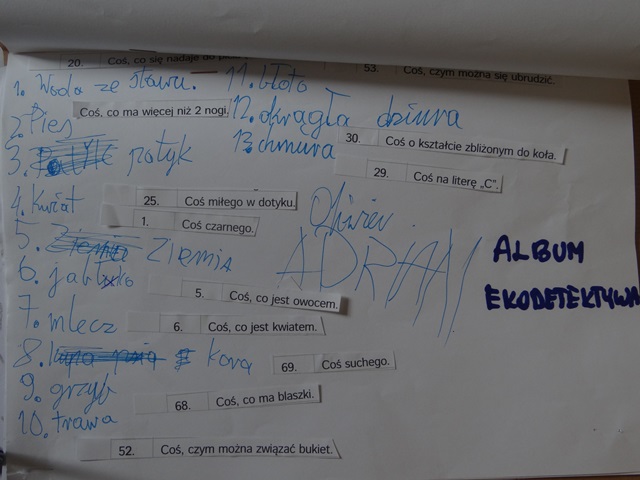 20. Coś, co się nadaje do
53. Coś, czym można się ubrudzić.
1. Woda ze stawu.
11. błoto
Coś, co ma więcej niż 2 nogi.
12. okrągła dziura
2. Pies
13. chmura
30. Coś o kształcie zbliżonym do koła.
3. patyk
29. Coś na literę „C".
4. Kwiat
25. Coś miłego w dotyku.
1. Coś czarnego.
ADRIAN
ALBUM
EKODETEKTYWA
5. Ziemia
6. jabłko
5. Coś, co jest owocem.
7. mlecz
6. Coś, co jest kwiatem.
8. kora
69. Coś suchego.
9. grzyb
68. Coś, co ma blaszki.
10. trawa
52. Coś, czym można związać bukiet.